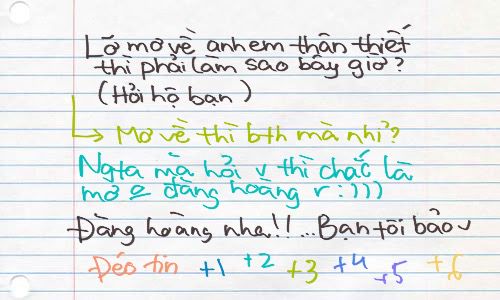 Lỡ mơ về anh em thân thiết
thì phải làm sao bây giờ?
(Hỏi hộ bạn)
Mơ về thì bth mà nhỉ?
Ngta mà hỏi v thì chắc là
mơ ko đàng hoàng r :)))
Đàng hoàng nha!!...Bạn tôi bảo v
Déo tin +1 +2 +3 +4 +5 +6